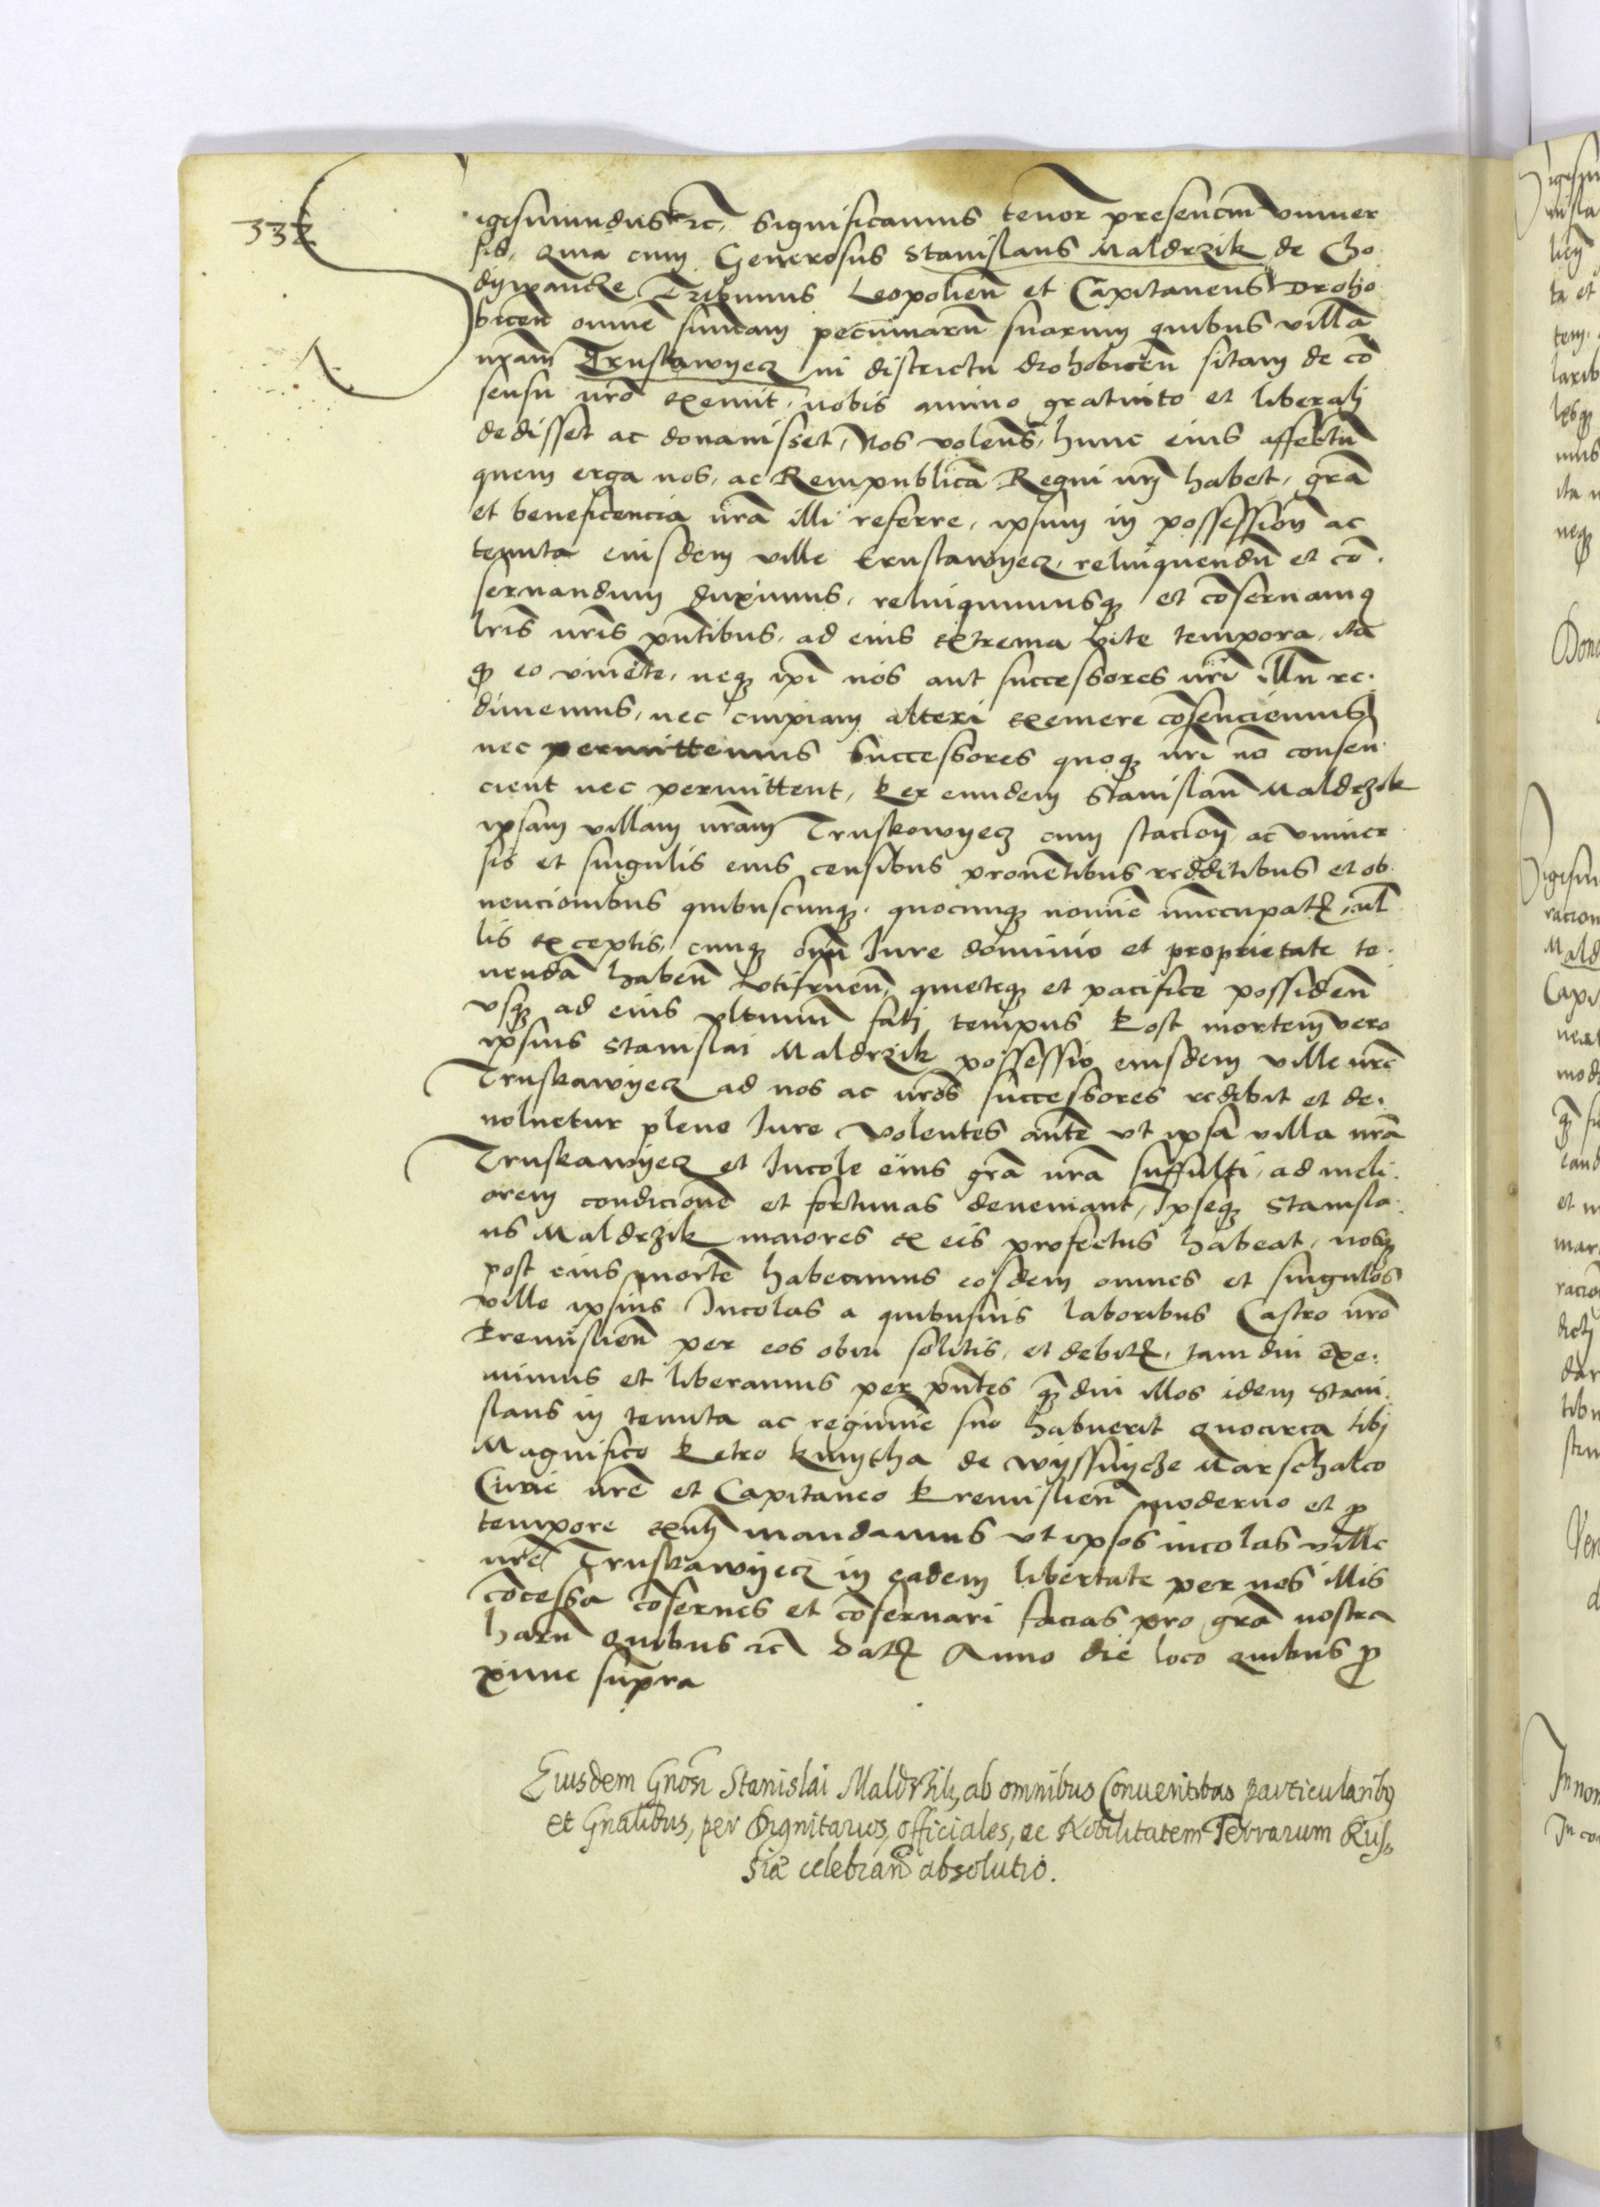 332
Sigismundus etc. Significamus tenor presencium vniuer
sis. Quia cum Generosus Stanislaus Maldrzik de Cho
dywancze Tribunus Leopolien̄ et Capitaneus Droho
bicen̄ omnē sum̄am pecuniarū suarum quibus villā
nr̄am Truskawyecz in districtu drohobicen̄ sitam de cō
sensu nr̄o exemit, nobis animo gratuito et liberali
dedisset ac donauisset, Nos volens̄, hunc eius affectū
quem erga nos, ac Rempublicā Regni nr̄j habet, gr̄a
et beneficencia nr̄a illi referre, ipsum in possession̄ ac
tenuta eiusdem ville Truskawyecz, relinquendū et cō
seruandum duximus, relinquimusq; et cōseruamus
lr̄is nr̄is pn̄tibus, ad eius extrema vite tempora, ita
q̄ eo viuen̄te, neq; ip̄i nos aut successores nr̄i illū re
dimemus, nec cuipiam alteri exemere cōsenciemus
nec permittemus Successores quoq; nr̄i nō consen
cient nec permittent, Per eundem Stanislaū Maldrzik
ipsam villam nr̄am Truskowyecz cum stacion̄ ac vniuer
sis et singulis eius censibus prouentibus redditibus et ob
uencionibus quibuscunq; quocunq; nomīe nuncupat̄, nul
lis exceptis, cumq; om̄i Iure dominio et proprietate te
nendā haben̄ vtifruen̄, quieteq; et pacifice possiden̄
vsq; ad eius vltimum fati tempus Post mortem vero
ipsius Stanislai Maldrzik possessio eiusdem ville nr̄e
Truskawyecz ad nos ac nr̄os successores redibit et de
uoluetur pleno Iure Volentes autē vt ipsa villa nr̄a
Truskawyecz et Incole eius gr̄a nr̄a suffulti, ad meli
orem condicionē et fortunas deueniant, Ipseq; Stanisla
us Maldrzik maiores ex eis profectus habeat, nosq;
post eius mortē habeamus eosdem omnes et singulos
ville ipsius Incolas a quibusuis laboribus Castro nr̄o
Premislien̄ per eos obiri solitis, et debit̄, tam diu exe
mimus et liberamus per pn̄tes q̄ diu illos idem Stani
slaus in tenuta ac regimīe suo habuerit Quocirca tibj
Magnifico Petro Kmytha de Wyssnycze Marschalco
Curie nr̄e et Capitaneo Premislien̄ moderno et p̄
tempore exn̄ti mandamus vt ipsos incolas ville
nr̄e Truskawyecz in eadem libertate per nos illis
cōcessa cōserues et cōseruari facias pro gr̄a nostra
harū Quibus etc Dat̄ Anno die loco quibus p̄
xime supra
Eiusdem Gnōsi Stanislai Maldrzik, ab omnibus Conuentibus particularibus
et Gnālibus, per Dignitarios, officiales, ac Nobilitatem Terrarum Rus
siæ celebran̄ absolutio.